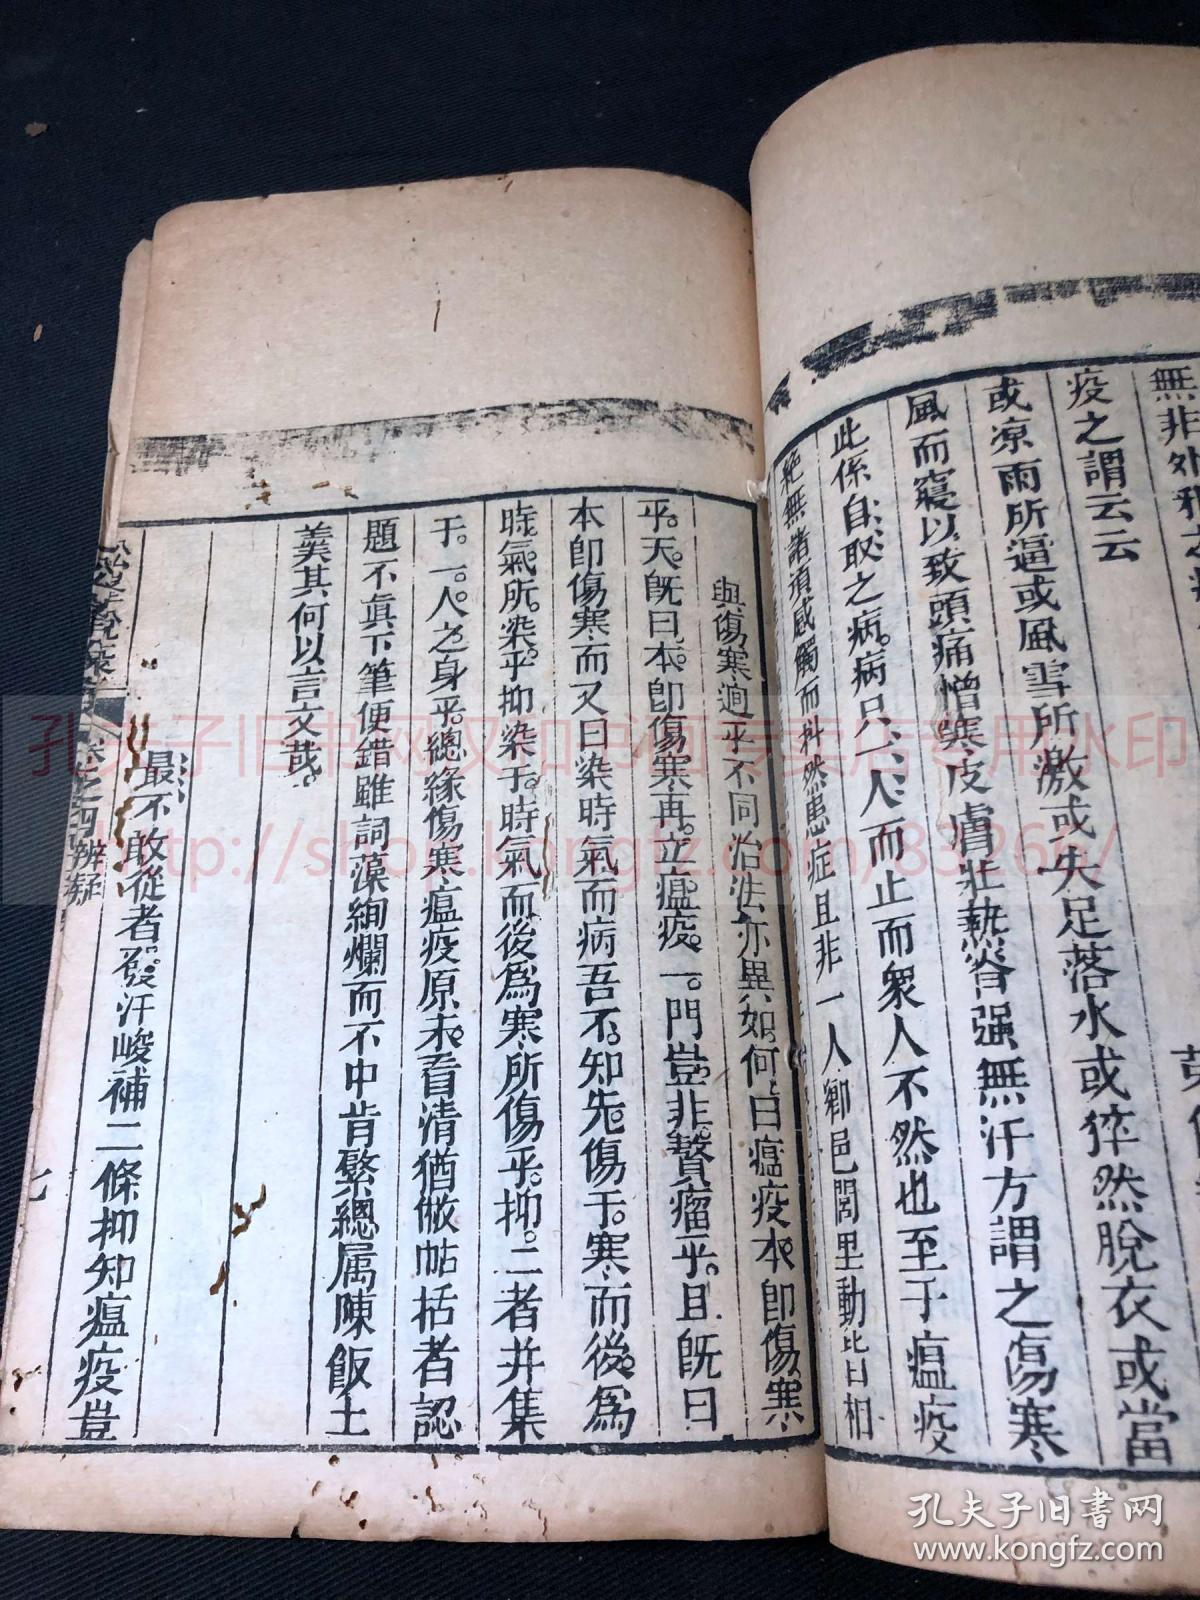 無非外邪
疫之謂云云
或凉雨所逼或風雪所激或失足落水或猝然脫衣或當
風而寢以致頭痛憎寒皮膚壯熱脊强無汗方謂之傷寒
此係自取之病病只一人而止而衆人不然也至于瘟疫
絶無諸項感觸而抖然患症且非一人鄉邑閭里動比日相
與傷寒迥乎不同治法亦異如何曰瘟疫本即傷寒
乎天旣曰本即傷寒再立瘟疫一門豈非贅瘤乎且旣曰
本即傷寒而又曰染時氣而病吾不知先傷于寒而後爲
時氣所染乎抑染于時氣而後爲寒所傷乎抑二者并集
于一人之身乎總緣傷寒瘟疫原未看清猶做帖括者認
題不眞下筆便錯雖詞藻絢爛而不中肯綮總属陳飯土
羮其何以言文哉
最不敢從者發汗峻補二條抑知瘟疫豈
卷之四 辨疑
七
孔夫子旧书网
www.kongfz.com
http://shop.kongfz.com/83266/